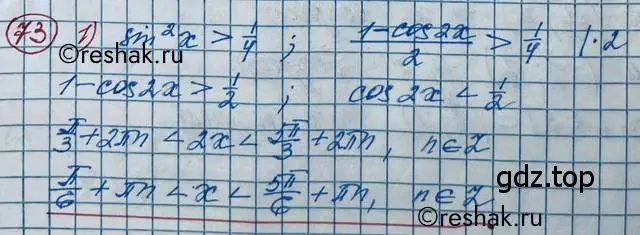 73 1) sin²x > 1/4 ; (1-cos2x)/2 > 1/4 |·2
1-cos2x > 1/2 ; cos2x < 1/2
π/3 + 2πn < 2x < 5π/3 + 2πn, n∈Z
π/6 + πn < x < 5π/6 + πn, n∈Z
gdz.top